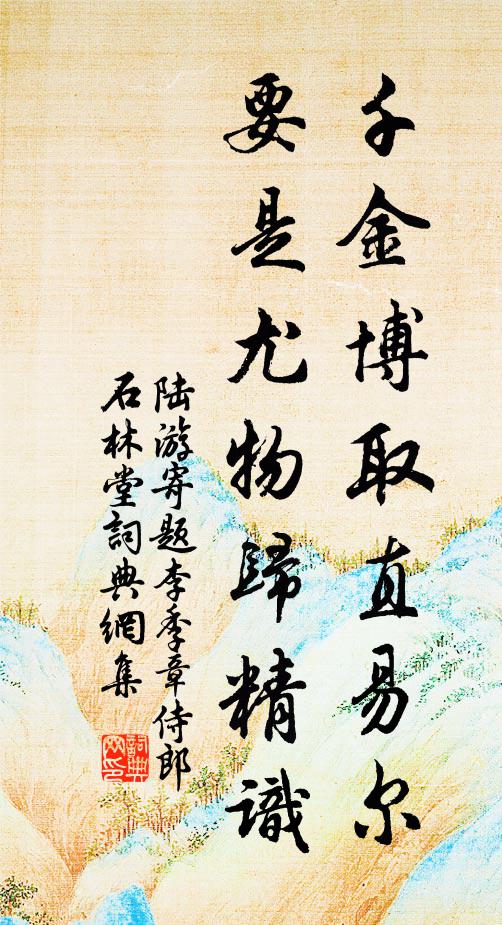 千金博取直易尔
要是尤物歸精識
陆游寄题李季章侍郎
石林堂詞典網集
詞典网印